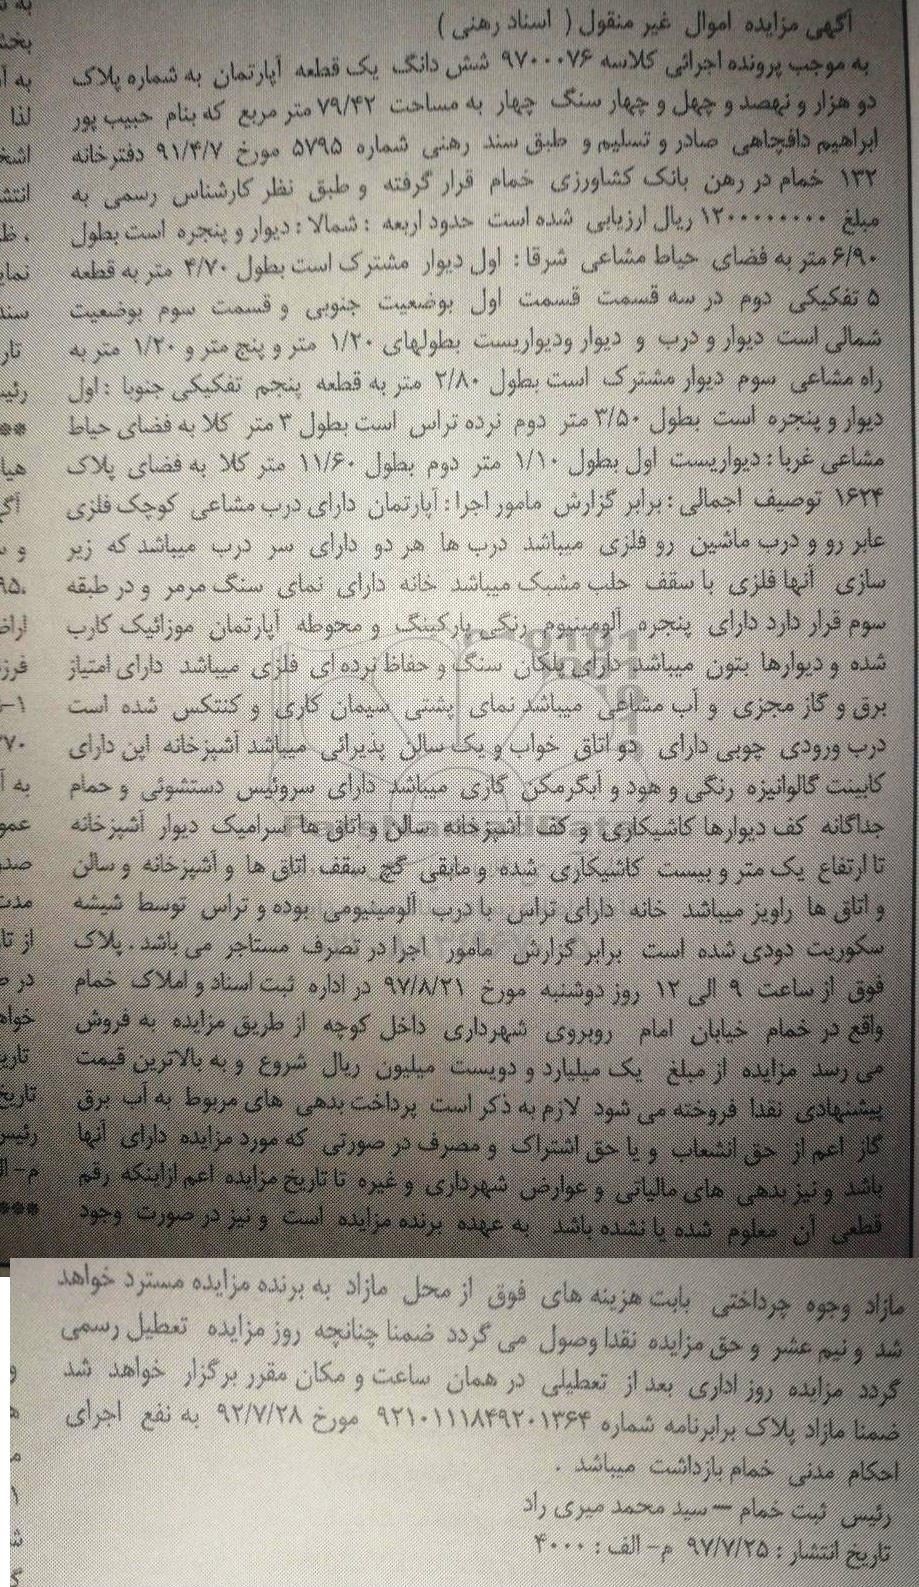 آگهی مزایده اموال غیر منقول ( اسناد رهنی )
به موجب پرونده اجرائی کلاسه ۹۷۰۰۰۷۶ شش دانگ یک قطعه آپارتمان به شماره پلاک
دو هزار و نهصد و چهل و چهار سنگ چهار به مساحت ۷۹/۴۲ متر مربع که بنام حبیب پور
ابراهیم دافچاهی صادر و تسلیم و طبق سند رهنی شماره ۵۷۹۵ مورخ ۹۱/۴/۷ دفترخانه
۱۳۲ خمام در رهن بانک کشاورزی خمام قرار گرفته و طبق نظر کارشناس رسمی به
مبلغ ۱۲۰۰۰۰۰۰۰۰ ریال ارزیابی شده است حدود اربعه : شمالا : دیوار و پنجره است بطول
۶/۹۰ متر به فضای حیاط مشاعی شرقا : اول دیوار مشترک است بطول ۴/۷۰ متر به قطعه
۵ تفکیکی دوم در سه قسمت قسمت اول بوضعیت جنوبی و قسمت سوم بوضعیت
شمالی است دیوار و درب و دیوار ودیواریست بطولهای ۱/۲۰ متر و پنج متر و ۱/۲۰ متر به
راه مشاعی سوم دیوار مشترک است بطول ۲/۸۰ متر به قطعه پنجم تفکیکی جنوبا : اول
دیوار و پنجره است بطول ۳/۵۰ متر دوم نرده تراس است بطول ۳ متر کلا به فضای حیاط
مشاعی غربا : دیواریست اول بطول ۱/۱۰ متر دوم بطول ۱۱/۶۰ متر کلا به فضای پلاک
۱۶۲۴ توصیف اجمالی : برابر گزارش مامور اجرا : آپارتمان دارای درب مشاعی کوچک فلزی
عابر رو و درب ماشین رو فلزی میباشد درب ها هر دو دارای سر درب میباشد که زیر
سازی آنها فلزی با سقف حلب مشبک میباشد خانه دارای نمای سنگ مرمر و در طبقه
سوم قرار دارد دارای پنجره آلومینیوم رنگی پارکینگ و محوطه آپارتمان موزائیک کارب
شده و دیوارها بتون میباشد دارای پلکان سنگ و حفاظ نرده ای فلزی میباشد دارای امتیاز
برق و گاز مجزی و آب مشاعی میباشد نمای پشتی سیمان کاری و کنتکس شده است
درب ورودی چوبی دارای دو اتاق خواب و یک سالن پذیرائی میباشد آشپزخانه اپن دارای
کابینت گالوانیزه رنگی و هود و آبگرمکن گازی میباشد دارای سروئیس دستشوئی و حمام
جداگانه کف دیوارها کاشیکاری و کف آشپزخانه سالن و اتاق ها سرامیک دیوار آشپزخانه
تا ارتفاع یک متر و بیست کاشیکاری شده و مابقی گچ سقف اتاق ها و آشپزخانه و سالن
و اتاق ها راویز میباشد خانه دارای تراس با درب آلومینیومی بوده و تراس توسط شیشه
سکوریت دودی شده است برابر گزارش مامور اجرا در تصرف مستاجر می باشد . پلاک
فوق از ساعت ۹ الی ۱۲ روز دوشنبه مورخ ۹۷/۸/۲۱ در اداره ثبت اسناد و املاک خمام
واقع در خمام خیابان امام روبروی شهرداری داخل کوچه از طریق مزایده به فروش
می رسد مزایده از مبلغ یک میلیارد و دویست میلیون ریال شروع و به بالاترین قیمت
پیشنهادی نقدا فروخته می شود لازم به ذکر است پرداخت بدهی های مربوط به آب برق
گاز اعم از حق انشعاب و یا حق اشتراک و مصرف در صورتی که مورد مزایده دارای آنها
باشد و نیز بدهی های مالیاتی و عوارض شهرداری و غیره تا تاریخ مزایده اعم ازاینکه رقم
قطعی آن معلوم شده یا نشده باشد به عهده برنده مزایده است و نیز در صورت وجود
مازاد وجوه چرداختی بابت هزینه های فوق از محل مازاد به برنده مزایده مسترد خواهد
شد و نیم عشر و حق مزایده نقدا وصول می گردد ضمنا چنانچه روز مزایده تعطیل رسمی
گردد مزایده روز اداری بعد از تعطیلی در همان ساعت و مکان مقرر برگزار خواهد شد
ضمنا مازاد پلاک برابرنامه شماره ۹۲۱۰۱۱۱۸۴۹۲۰۱۳۶۴ مورخ ۹۲/۷/۲۸ به نفع اجرای
احکام مدنی خمام بازداشت میباشد .
رئیس ثبت خمام – سید محمد میری راد
تاریخ انتشار : ۹۷/۷/۲۵ م- الف : ۴۰۰۰